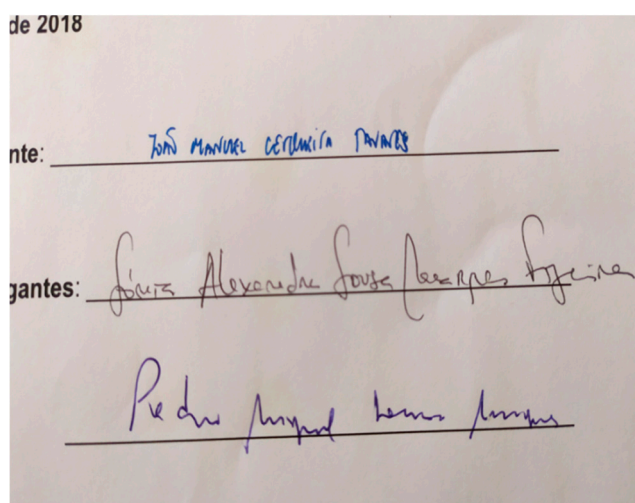 de 2018
nte: JOÃO MANUEL CERQUEIRA TAVARES
gantes: Sónia Alexandra Sousa Marques Figueira
Pedro Miguel Lemos Marques